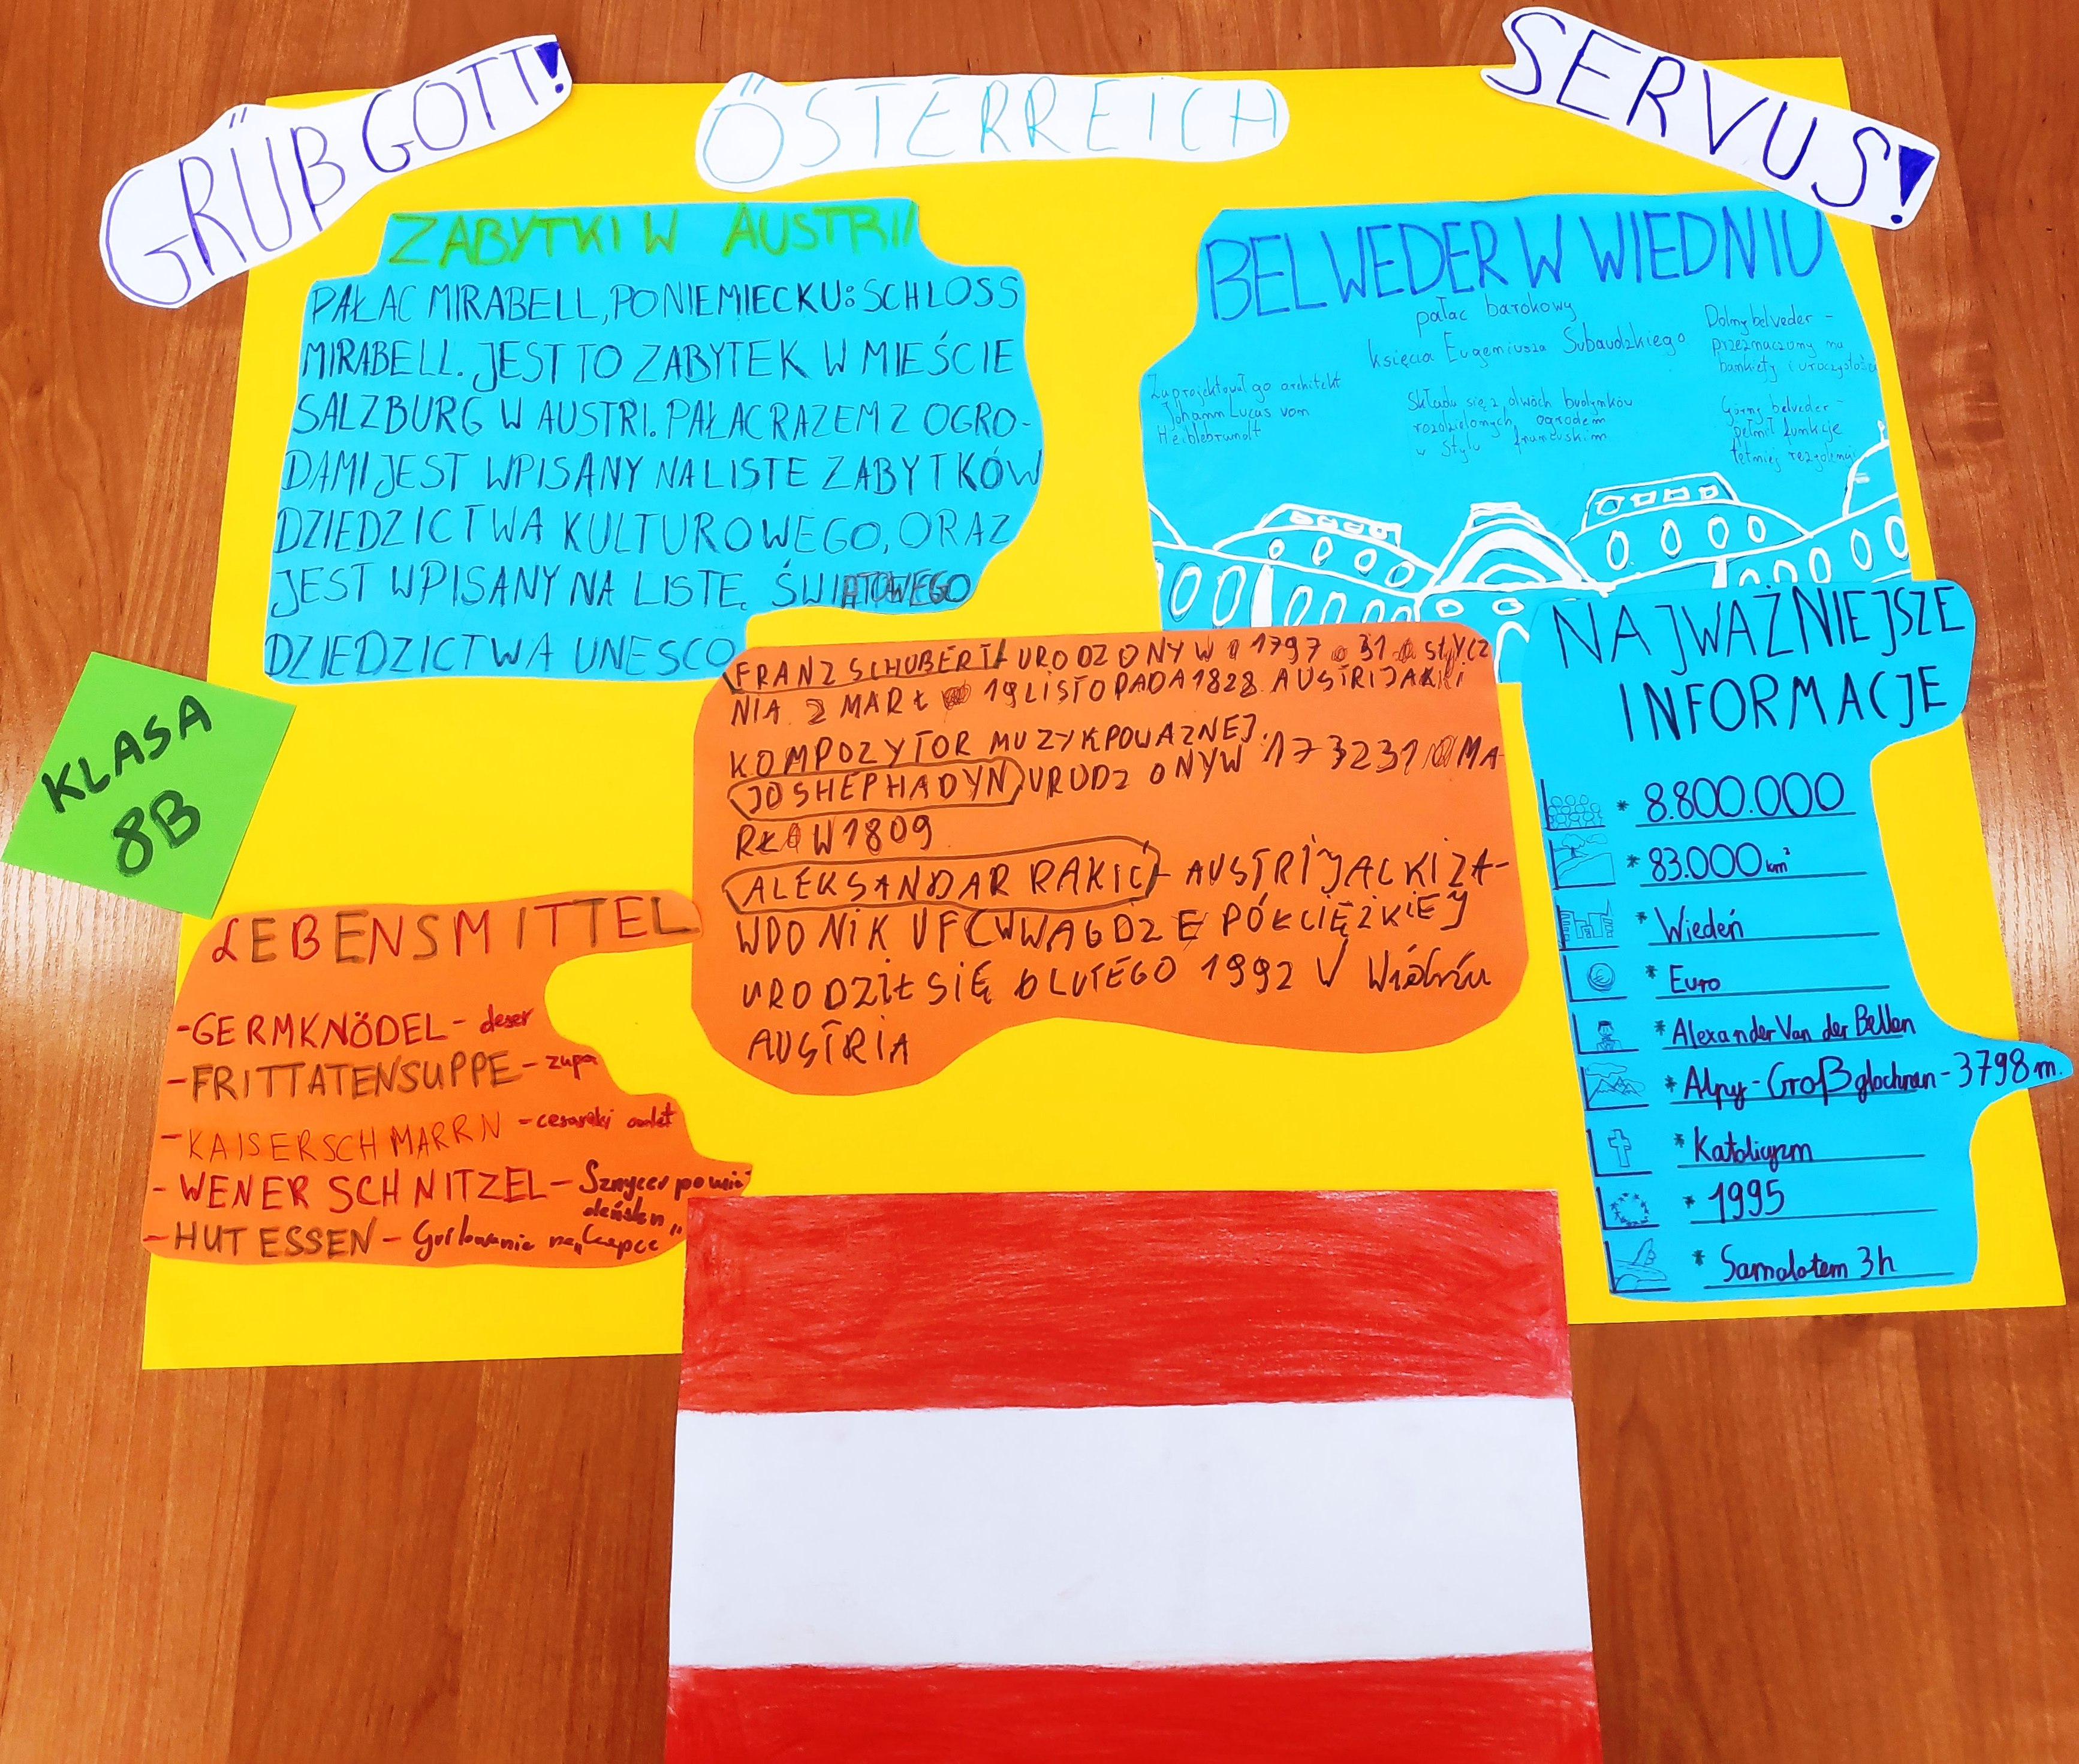 GRÜß GOTT!
ÖSTERREICH
SERVUS!
ZABYTKI W AUSTRII
PAŁAC MIRABELL, PO NIEMIECKU: SCHLOSS
MIRABELL. JEST TO ZABYTEK W MIEŚCIE
SALZBURG W AUSTRI. PAŁAC RAZEM Z OGRO-
DAMI JEST WPISANY NA LISTE ZABYTKÓW
DZIEDZICTWA KULTUROWEGO, ORAZ
JEST WPISANY NA LISTE ŚWIATOWEGO
DZIEDZICTWA UNESCO
BELWEDER W WIEDNIU
pałac barokowy
księcia Eugeniusza Sabaudzkiego
Zaprojektował go architekt
Johann Lucas von
Składa się z dwóch budynków
rozdzielonych ogrodem
w stylu francuskim
Dolny belveder -
przeznaczony na
bankiety i uroczystości
Górny belveder -
pełnił funkcje
letniej
KLASA
8B
FRANZ SCHUBERT URODZONY W 1797 31 stycz
NIA ZMARŁ 19 LISTOPADA 1828 AUSTRIJAKI
KOMPOZYTOR MUZYK POWAZNEJ.
JOSHEPH HADYN URODZONY W 1732 31 MA
RŁ W 1809
ALEKSANDAR RAKIĆ - AUSTRIJACKI ZA-
WDONIK UFC W WAGDZE PÓŁCIĘŻKIEJ
URODZIŁ SIĘ 6 LUTEGO 1992 V Wiedniu
AUSTRIA
LEBENSMITTEL
-GERMKNÖDEL - deser
-FRITTATENSUPPE - zupa
-KAISERSCHMARRN - cesarski omlet
-WENER SCHNITZEL - Sznycer po wie
deńsku
-HUT ESSEN - Grilowanie na „Czapce"
NAJWAŻNIEJSZE
INFORMACJE
* 8.800.000
* 83.000 km²
* Wiedeń
* Euro
* Alexander Van der Bellen
* Alpy - Großglockner - 3798 m.
* Katolicyzm
* 1995
* Samolotem 3h